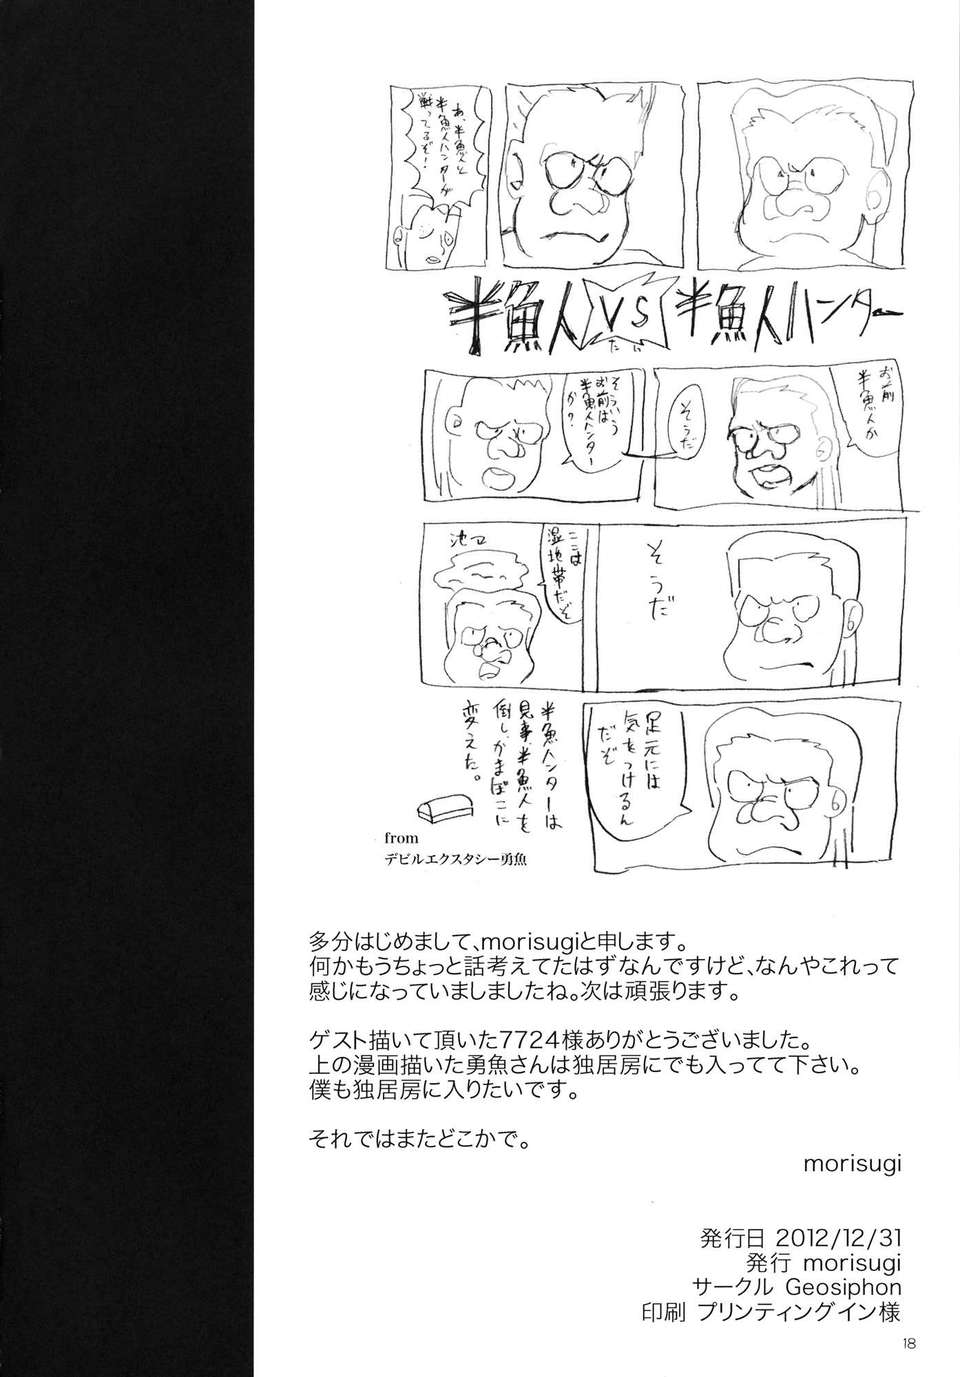 あ、半魚人と
半魚人ハンターが
戦ってるぞ!
半魚人VS半魚人ハンター
たい
お前
半魚人か
そうだ
そういう
お前は
半魚人ハンター
か?
そうだ
ここは
湿地帯だぞ
足元には
気をつけるん
だぞ
半魚ハンターは
見事、半魚人を
倒し、かまぼこに
変えた。
from
デビルエクスタシー勇魚
多分はじめまして、morisugiと申します。
何かもうちょっと話考えてたはずなんですけど、なんやこれって
感じになっていましましたね。次は頑張ります。
ゲスト描いて頂いた7724様ありがとうございました。
上の漫画描いた勇魚さんは独居房にでも入ってて下さい。
僕も独居房に入りたいです。
それではまたどこかで。
morisugi
発行日 2012/12/31
発行 morisugi
サークル Geosiphon
印刷 プリンティングイン様
18